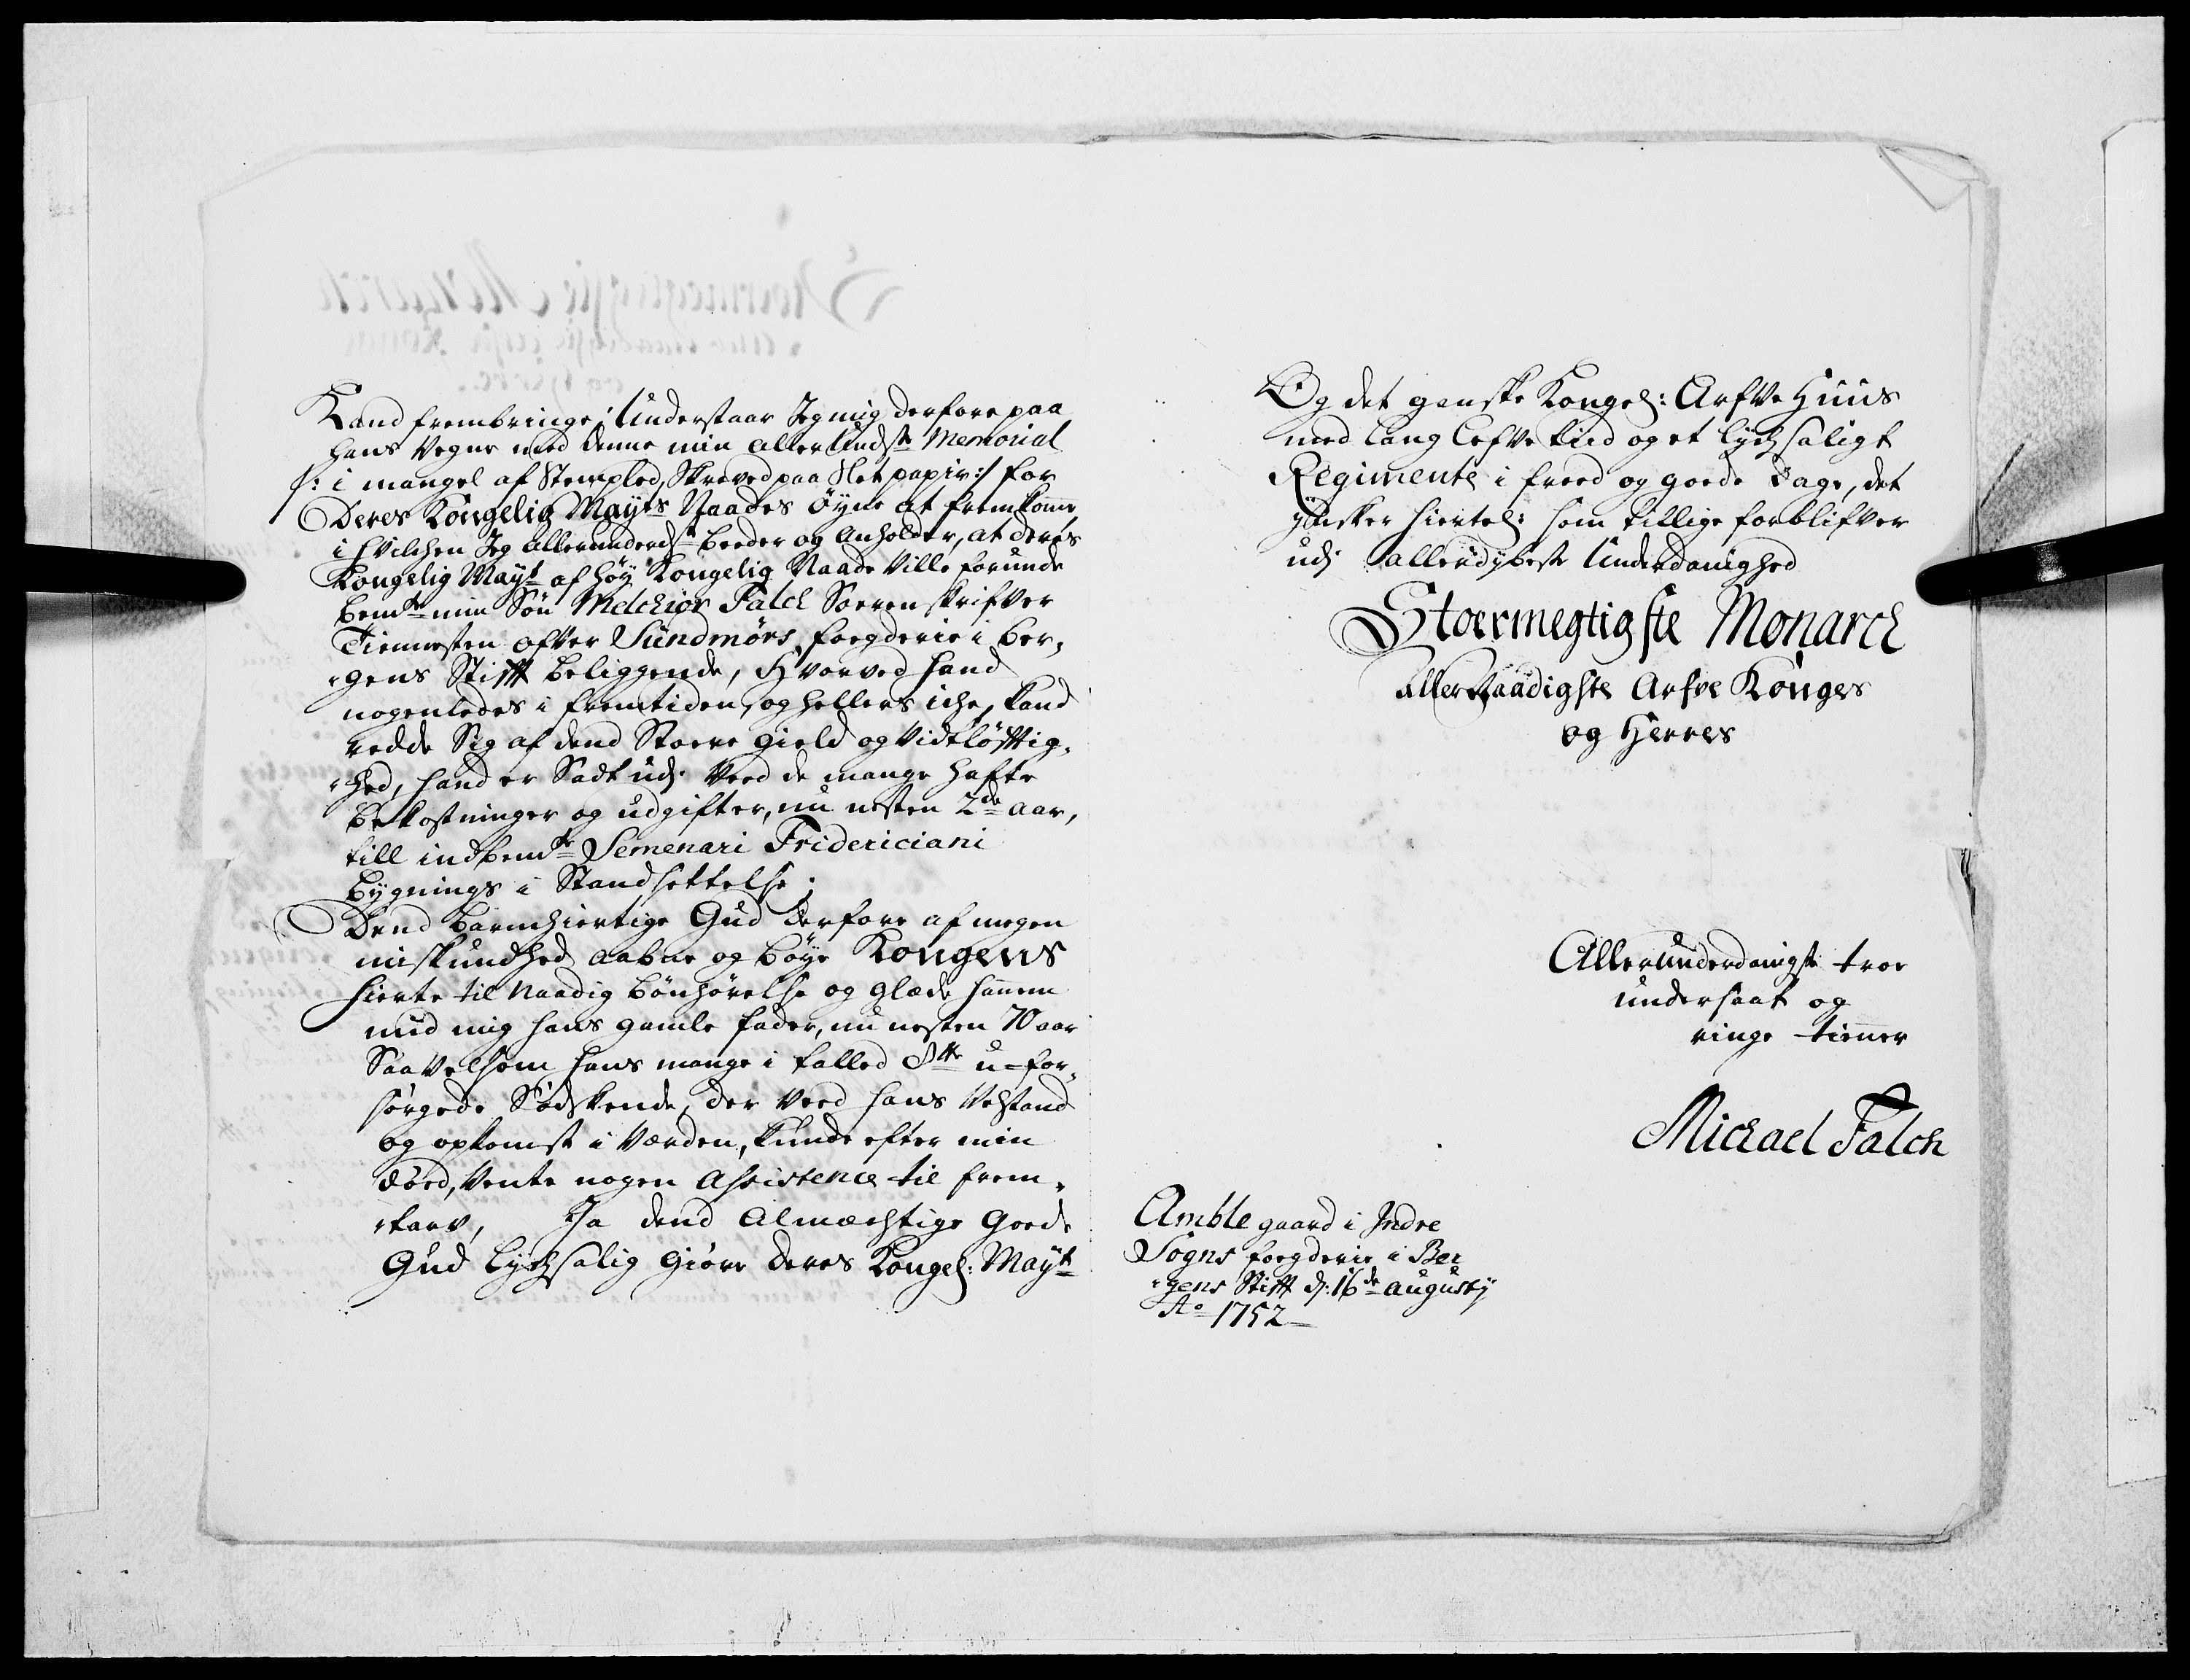 Kand frembringe; Understaar Jeg mig derfore paa
hans Vegne med denne min allerUndste Memorial
/: i mangel af Stempled, Skreved paa Slet papir:/ for
Deres Kongelig Mayts Naades Øyne at fremkomme,
i hvilchen Jeg allerunderdst beeder og anholder, at deres
Kongelig Mayt af høy Kongelig Naade Ville forunde
bemte min Søn Melchior Falch Sorenskrifver
Tiennesten ofver Sundmørs foegderie i Ber,,
,,gens Stifft beliggende, Hvorved hand
nogenledes i fremtiden, og hellers iche, kand
redde Sig af dend Stoere gield og Vidtløfftig,,
,,hed, hand er Sadt udj Ved de mange hafte
bekostninger og udgifter, nu nesten 2de aar,
till indbemte Semenari Fridericiani
bygnings i Standsettelse;
Dend barmhiertige Gud derfore af megen
miskundhed aabne og bøye Kongens
hierte til Naadig bønhørelse og glæde hannem
med mig hans gamle fader, nu nesten 70 aar
Saavelsom hans mange i talled 8tte u-for,,
sørgede Sødskende, der Ved hans Velstand
og opkomst i Verden, kunde efter min
død, Vente nogen assistence til frem,,
,,tarv, Ja dend almæchtige goede
Gud lychsalig giøre deres Kongel: Mayt
Og det ganske Kongel: Arfve Huus
med lang lefve tiid og et lychsaligt
Regimente i freed og goede dage, det
ynsker hiertel: som tillige forblifver
udj allerdybeste Underdanighed
Stoermegtigste Monarch
allerNaadigste Arfve Konges
og Herres
Allerunderdanigste troe
undersaat og
ringe tienner
Michael Falch
Amble gaard i Indre
Sogns foegderie i Ber
,,gens Stifft d: 16de augusty
Ao 1752